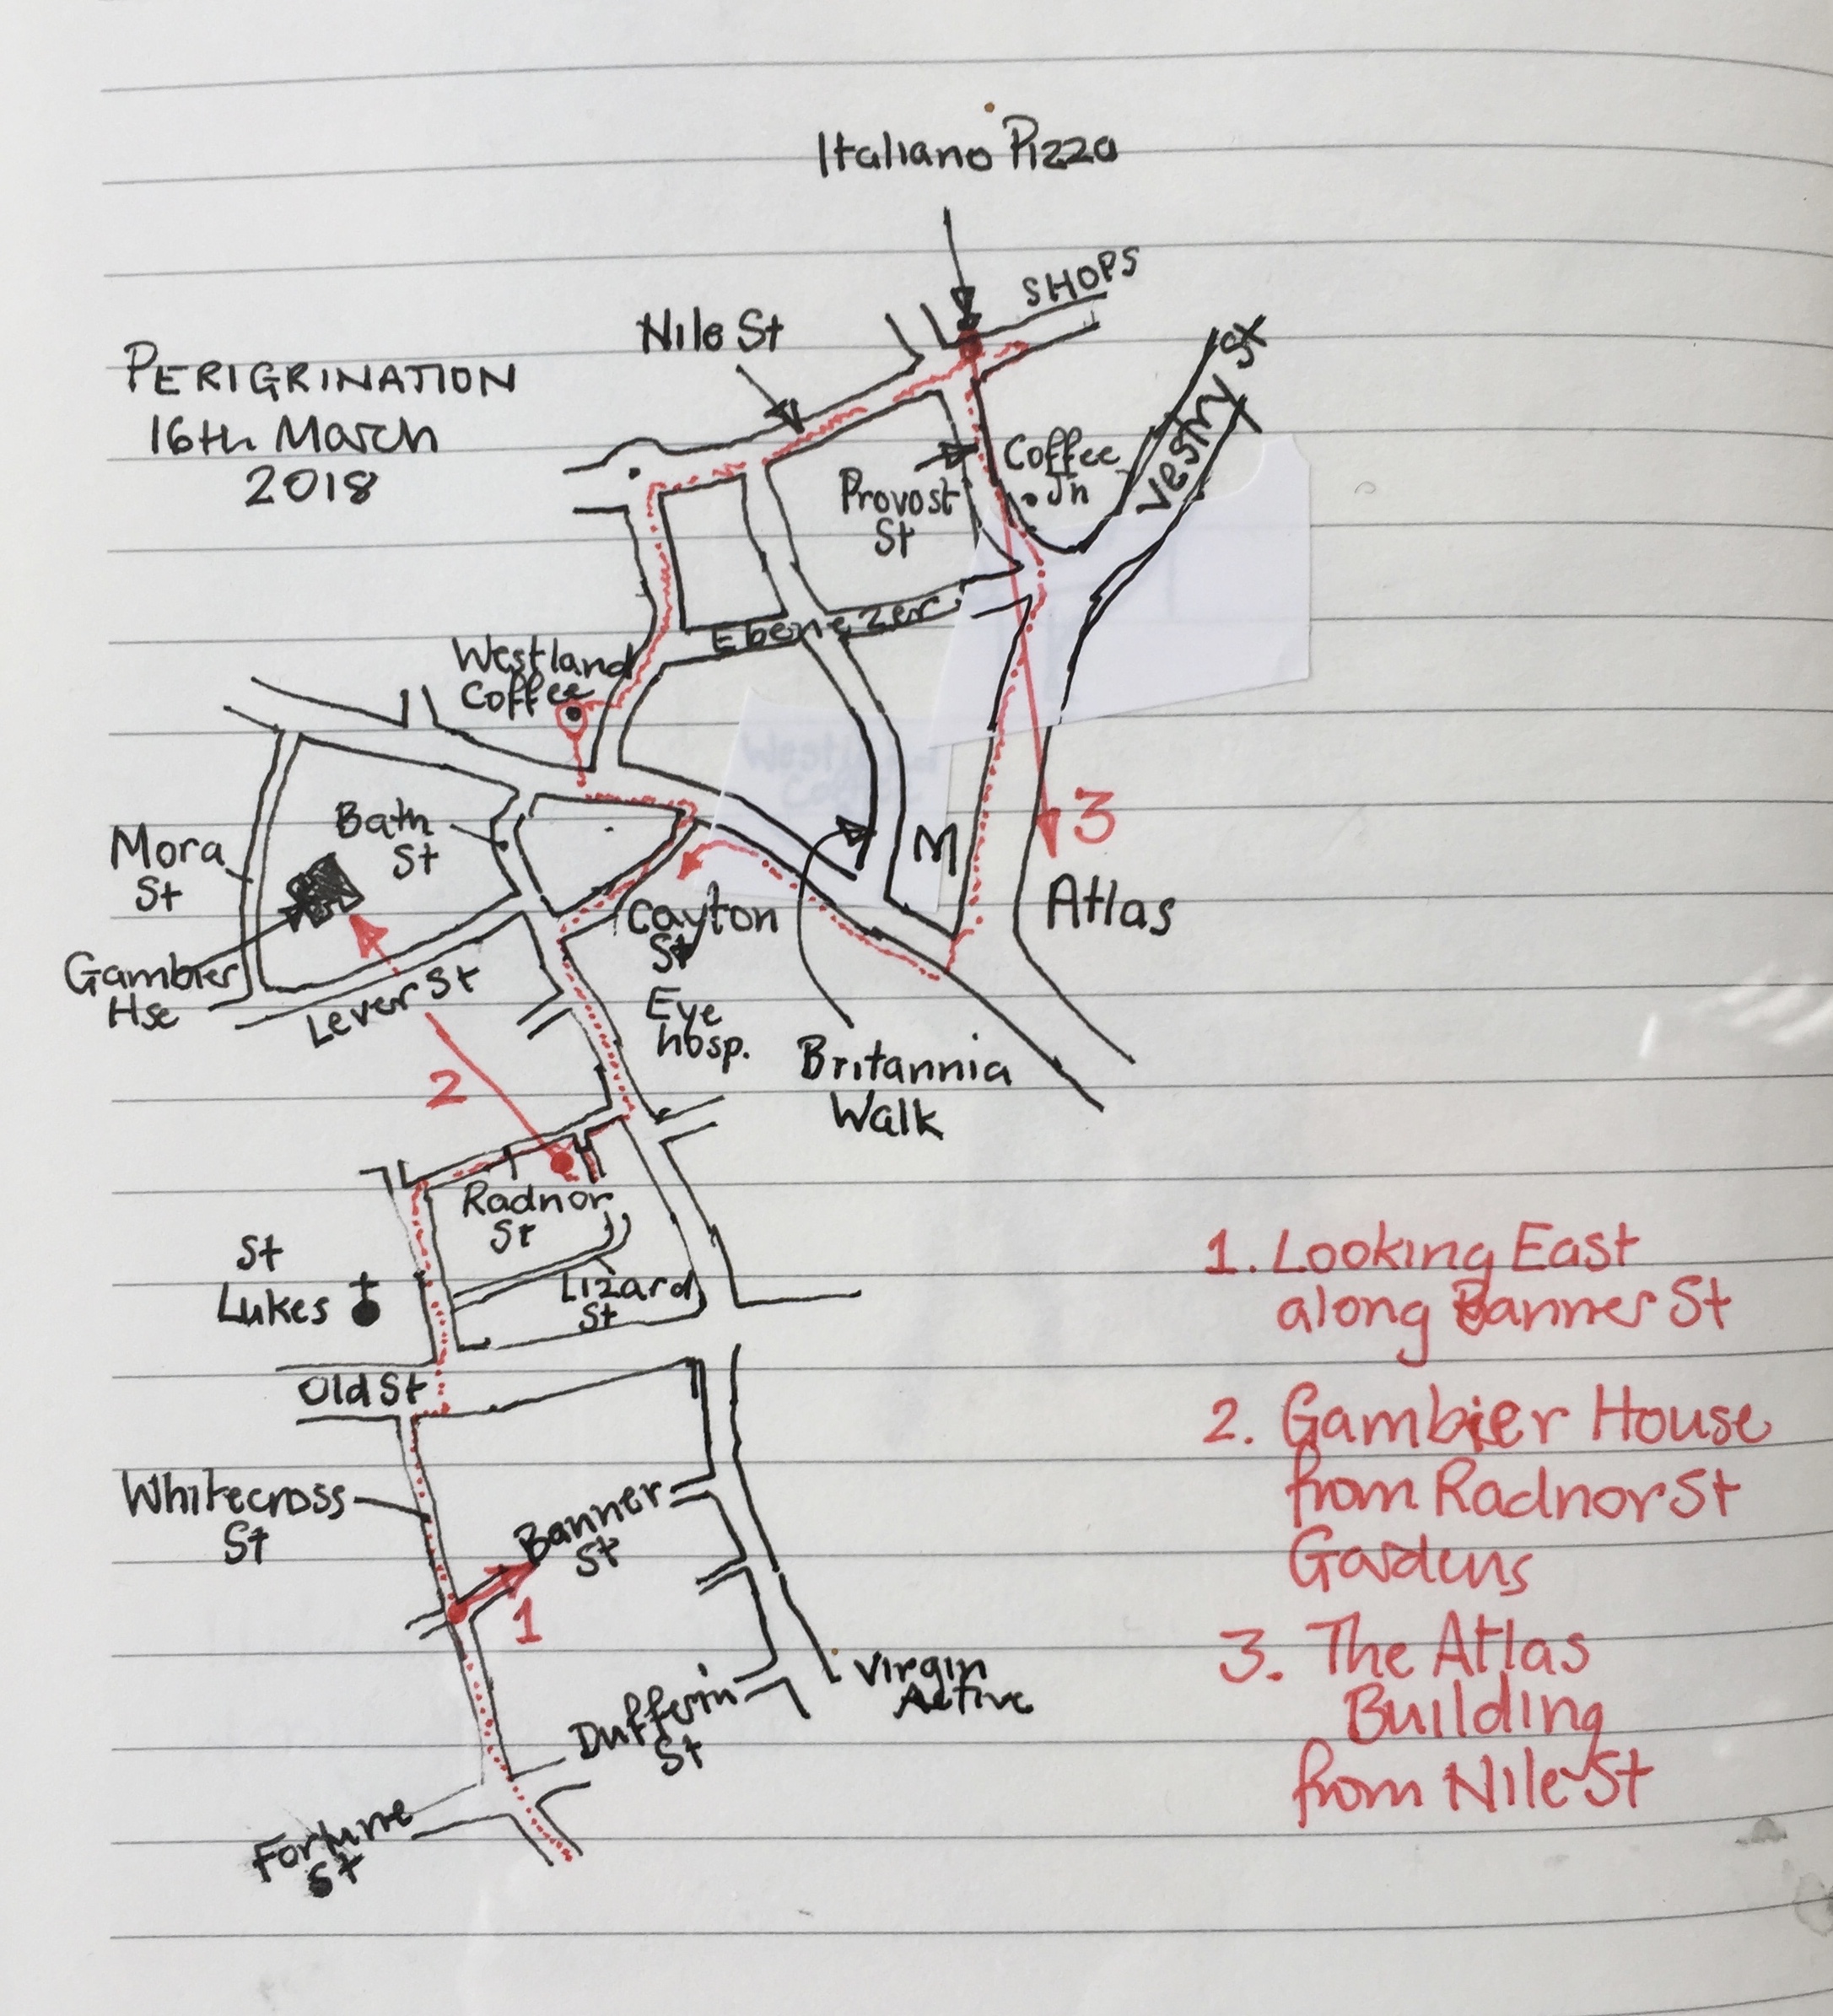 Italiano Pizza
SHOPS
Nile St
PERIGRINATION
16th March
2018
Vestry St
Coffee
Jn
Provost
St
Ebenezer
Westland
Coffee
Bath
St
Mora
St
3
M
Atlas
Cayton
St
Gambier
Hse
Lever St
Eye
hosp.
Britannia
Walk
2
Radnor
St
St
Lukes
Lizard
St
Old St
1. Looking East
along Banner St
2. Gambier House
from Radnor St
Gardens
3. The Atlas
Building
from Nile St
Whitecross
St
Banner
St
1
Virgin
Active
Dufferin
St
Fortune
St